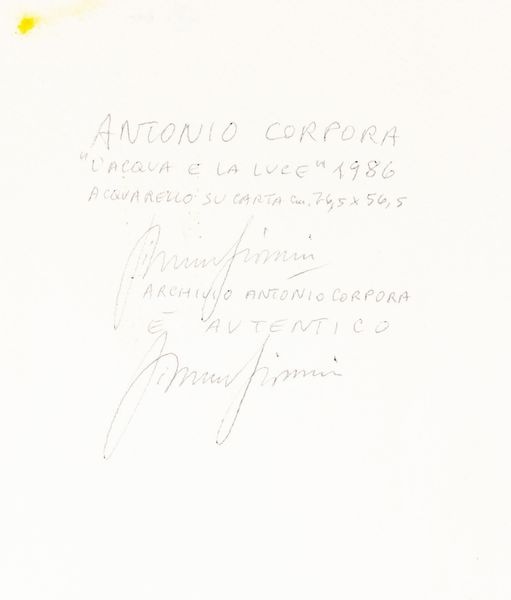 ANTONIO CORPORA
"L'ACQUA E LA LUCE" 1986
ACQUARELLO SU CARTA cm. 76,5 x 56,5
ARCHIVIO ANTONIO CORPORA
È AUTENTICO